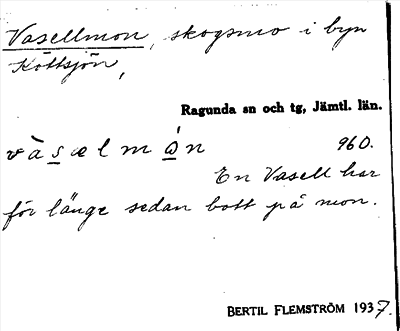 Vasellmon, skogsmo i byn
Köttsjön,
Ragunda sn och tg, Jämtl. län.
vàsælmó̲n 960.
En Vasell har
för länge sedan bott på mon.
BERTIL FLEMSTRÖM 1937.